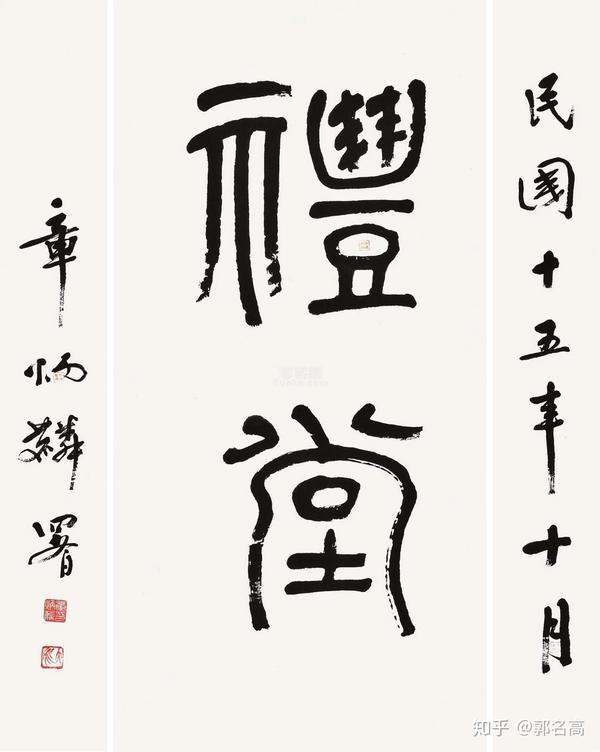 民國十五年十月
禮堂
章炳麟署
知乎 @郭名高